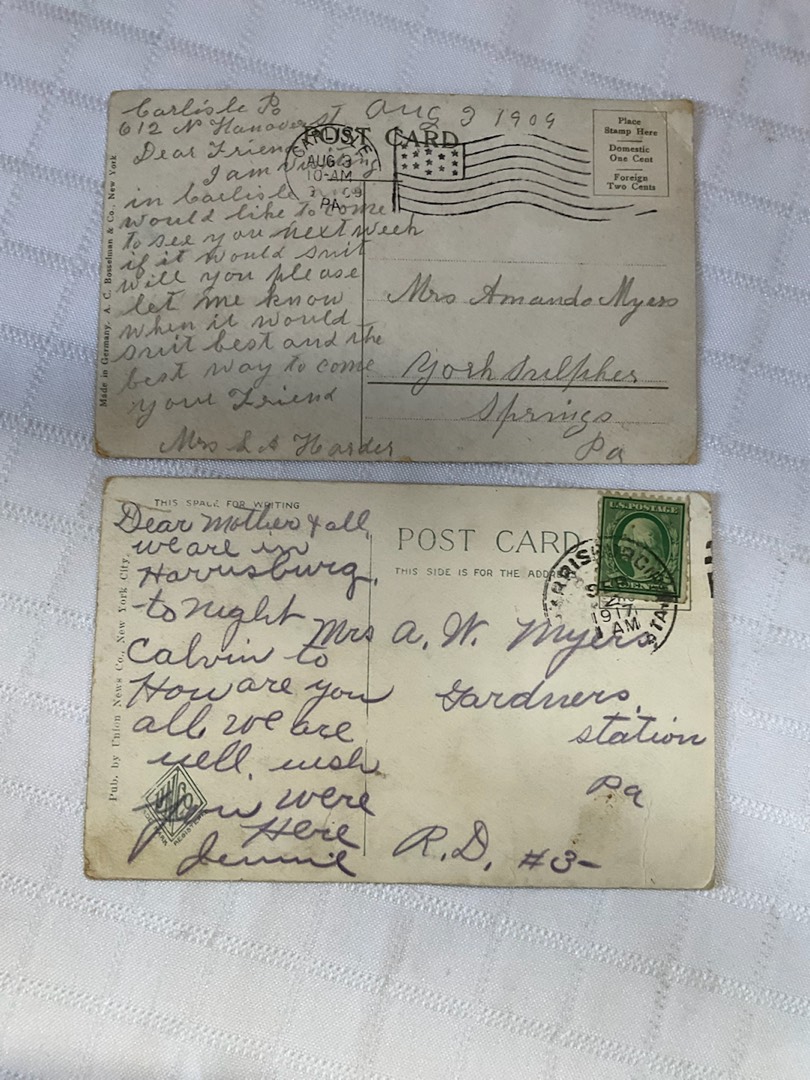 Carlisle Pa Aug 3 1909
612 N Hanover St
POST CARD
Dear Friend
I am visiting
in Carlisle
would like to come
to see you next week
if it would suit
will you please
let me know
when it would
suit best and the
best way to come
your Friend
Mrs L A Harder
Made in Germany. A. C. Bosselman & Co., New York
CARLISLE
AUG 3
10-AM
PA.
Place
Stamp Here
Domestic
One Cent
Foreign
Two Cents
Mrs Amanda Myers
York Sulpher
Springs
Pa
THIS SPACE FOR WRITING
Dear Mother & all
we are in
Harrisburg,
to night
Calvin to
How are you
all we are
well. wish
you were
Here
Jennie
Pub. by Union News Co., New York City
POST CARD
THIS SIDE IS FOR THE ADDRESS
U.S. POSTAGE
HARRISBURG
1917
1 AM
STA
Mrs A. W. Myers
Gardners
station
Pa
R.D. #3-